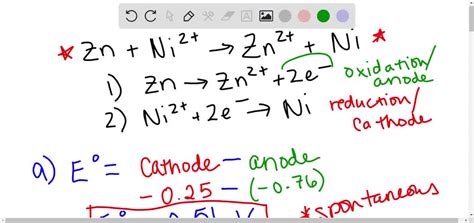 * Zn + Ni²⁺ → Zn²⁺ + Ni *
1) Zn → Zn²⁺ + 2e⁻ oxidation/anode
2) Ni²⁺ + 2e⁻ → Ni reduction/cathode
a) E° = Cathode - anode
- 0.25 - (-0.76)
*spontaneous